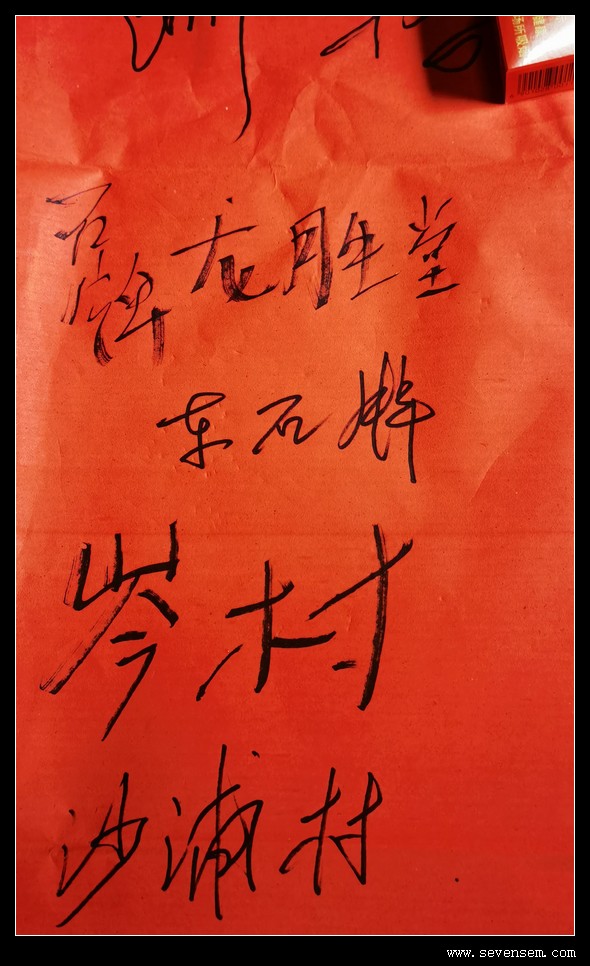 石牌龙胜堂
东石牌
岑村
沙浦村
www.sevensem.com